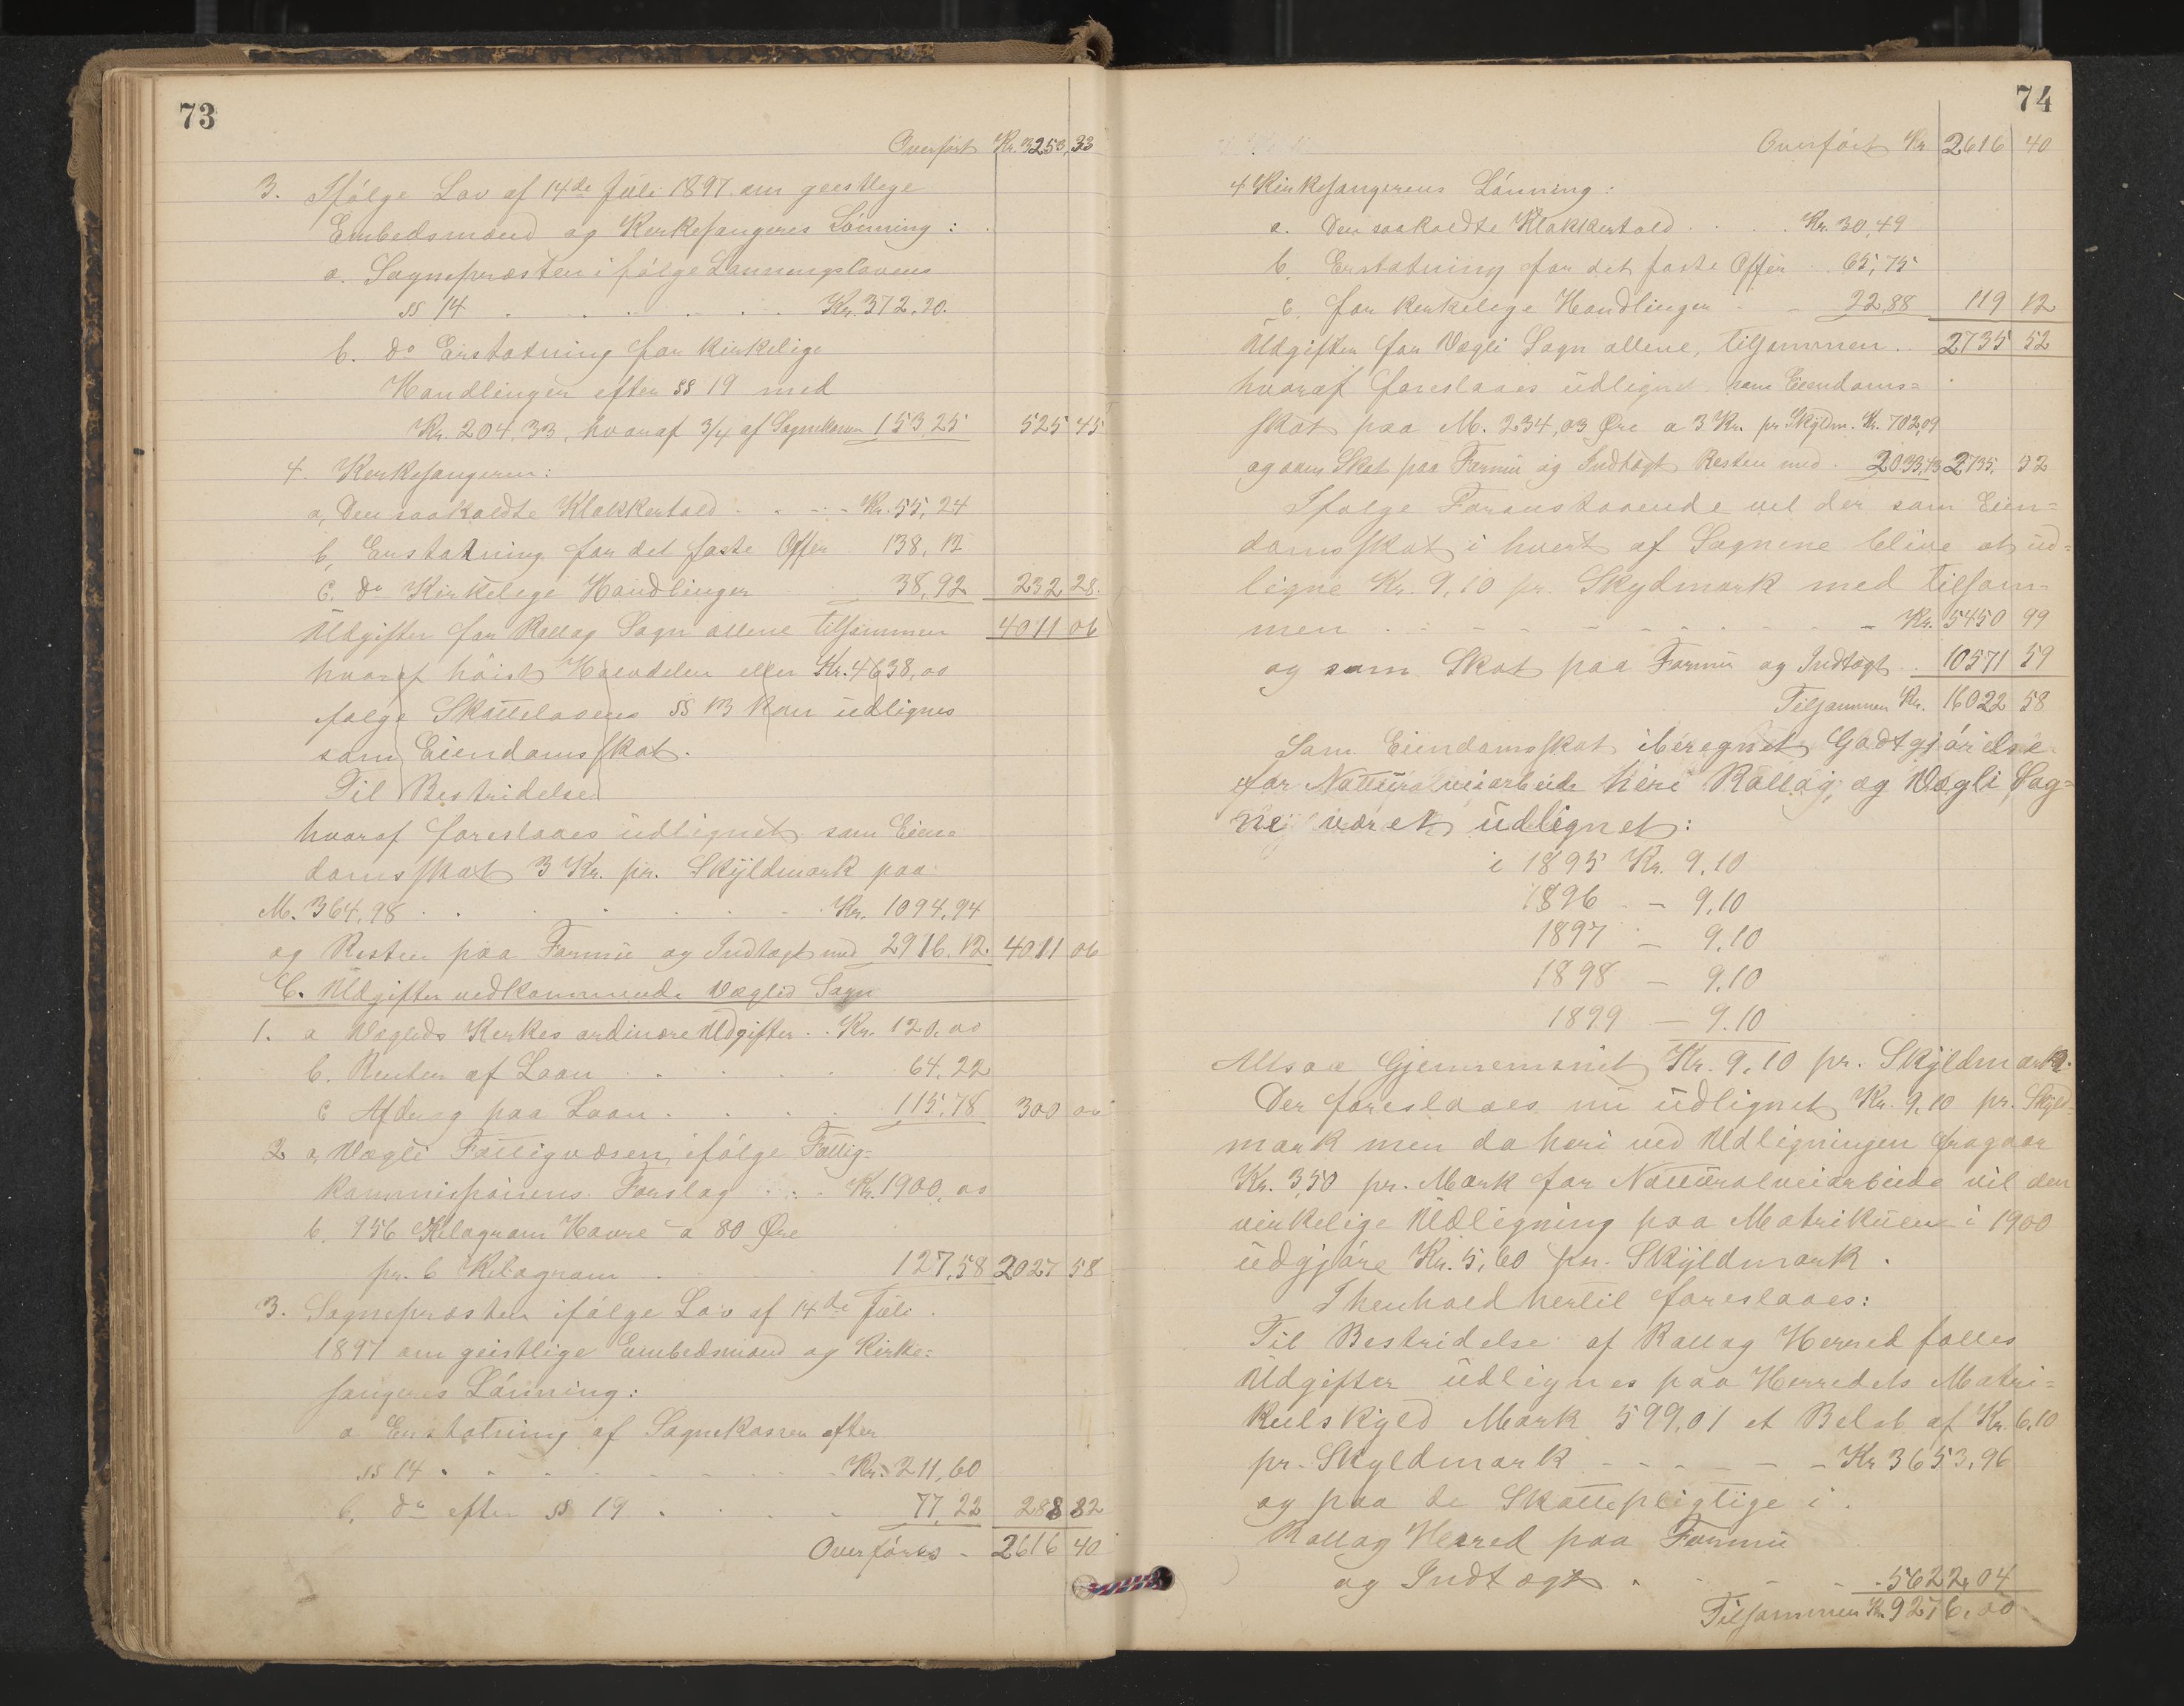 73
Overført Kr. 3253,33
3. Ifølge Lov af 14de Juli 1897 om geestlege
Embedsmænd og Kerkesangeres Lønning:
a. Sognepræsten i følge Lønningslovens
§§ 14 . . . . . . Kr. 372,20.
b. do Erstatning for kirkelige
Handlinger efter §§ 19 med
Kr. 204,33, hvoraf 3/4 af Sognekassen 153,25 525 45
4. Kerkesangeren:
a, Den saakaldte Klokkertold . . - - Kr. 55,24
b, Erstatning for det faste Offer 138,12
c. do Kirkelege Handlinger 38,92 232 28.
Udgifter for Rollag Sogn allene tilsammen 4011 06
hvoraf høist Halvdelen eller Kr. 4638,00
følge Skattelovens §§ 13 kan udlignes
som Eiendomsskat.
Til Bestridelse
hvoraf foreslaaes udlignet som Eien=
domsskat 3 Kr. pr. Skyldmark paa
M. 364,98 . . . . . . Kr. 1094,94
og Resten paa Formue og Indtægt med 2916,12. 4011 06
C. Udgifter vedkommende Væglid Sogn
1. a Væglids Kerkes ordinære Udgifter . . Kr. 120,00
b. Renter af Laan . . . . 64,22
c Afdrag paa Laan . . . . 115,78 300 00
2 a, Vægli Fattigvæsen, ifølge Fattig=
kommissionens Forslag . . . Kr. 1900,00
b. 956 Kilogram Havre a 80 Øre
pr. 6 Kilogram . . . 127,58 2027 58
3. Sognepræsten ifølge Lov af 14de Juli
1897 om geistlige Embedsmænd og Kirke=
sangeres Lønning:
a Erstatning af Sognekassen efter
§§ 14 . . . . . . Kr. 211,60
b. do efter §§ 19 . . . . 77,22 288 82
Overføres - 2616 40
74
Overført Kr 2616 40
4 Kirkesangerens Lønning:
a. Den saakaldte Klokkertold . . . . Kr. 30,49
b. Erstatning for det faste Offer . . 65,75
c. for kerkelege Handlinger - - 22,88 119 12
Udgifter for Vægli Sogn allene, tilsammen . . 2735 52
hvoraf foreslaaes udlignet som Eiendoms=
skat paa M. 234,03 Øre a 3 Kr. pr Skyldm. Kr. 702,09
og som Skat paa Formue og Indtægt Resten med . 2033,43 2735, 52
Ifølge Foranstaaende vel der som Eien=
domsskat i hvert af Sognene blive at ud=
ligne Kr. 9,10 pr. Skydmark med tilsam=
men . . . . . . . . Kr. 5450 99
og som Skat paa Formue og Indtægt . . 10571 59
Tilsammen Kr. 16022 58
Som Eiendomsskat iberegnet Godtgjørelse
for Naturalveiarbeide heri Rollag og Vægli Sog=
ne været udlignet:
i 1895 Kr. 9,10
1896 - - 9,10
1897 - 9,10
1898 - 9,10
1899 - 9.10
Altsaa Gjennemsnit Kr. 9,10 pr. Skyldmark.
Der foreslaaes nu udlignet Kr. 9,10 pr. Skyld=
mark men da heri ved Udligningen fragaar
Kr. 3,50 pr. Mark for Naturalveiarbeide vil den
virkelige Udligning paa Matrikuen i 1900
udgjøre Kr. 5,60 pr. Skyldmark.
I henhold hertil foreslaaes:
Til Bestridelse af Rollag Herred fælles
Udgifter udlignes paa Herredets Matri=
kulskyld Mark 599,01 et Beløb af Kr. 6,10
pr. Skyldmark - - - - - - Kr 3653,96
og paa de Skattepligtige i
Rollag Herred paa Formue
og Indtægt . . - - - 5622,04
Tilsammen Kr. 9276,00